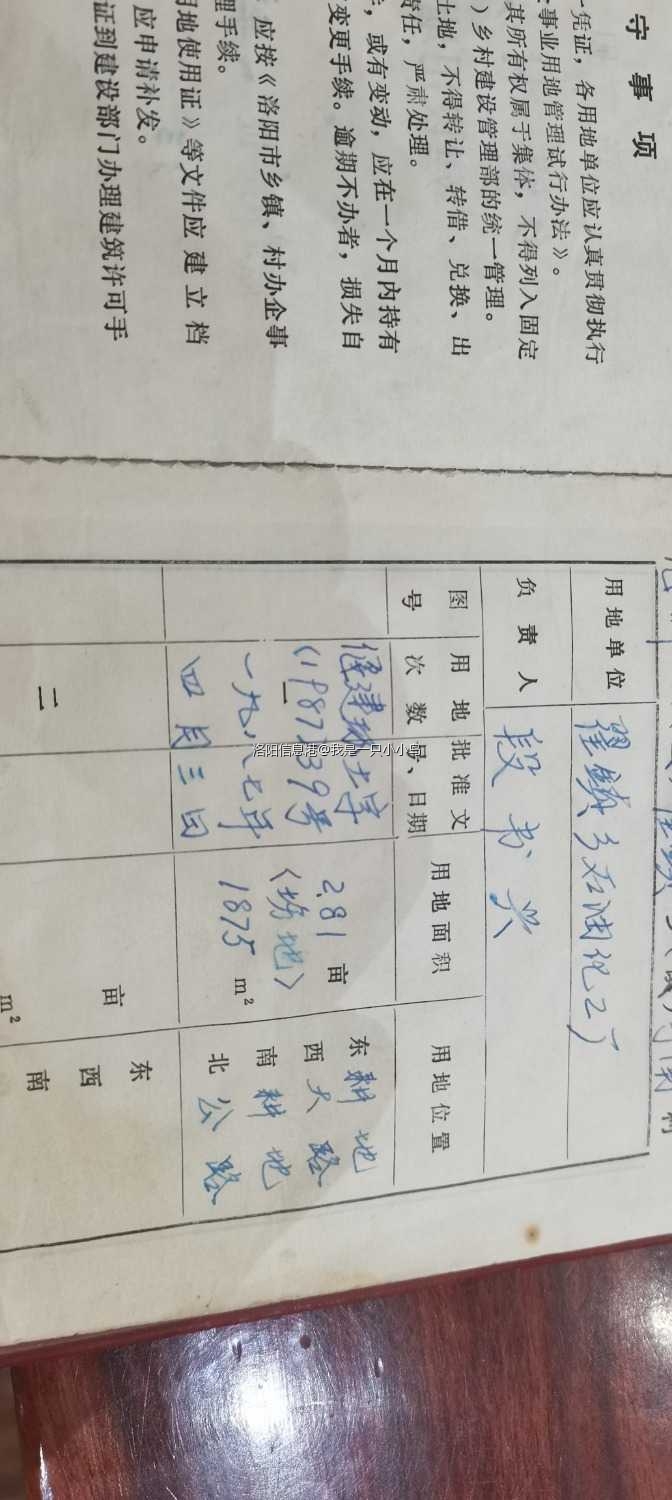 守事项
凭证,各用地单位应认真贯彻执行
事业用地管理试行办法》。
其所有权属于集体,不得列入固定
)乡村建设管理部的统一管理。
土地,不得转让、转借、兑换、出
责任,严肃处理。
,或有变动,应在一个月内持有
变更手续。逾期不办者,损失自
应按《洛阳市乡镇、村办企事
理手续。
用地使用证》等文件应建立档
应申请补发。
证到建设部门办理建筑许可手
用地单位 翟镇乡石油化工厂
负责人 段书兴
图号 用地次数 批准文号、日期 用地面积 用地位置
一 偃建 土字 2.81亩 东耕地
(1987)39号 〈场地〉 西大路
一九八七年 1875 m² 南耕地
四月三日 北公路
二 亩 东
m² 西
南
洛阳信息港@我是一只小小鸟